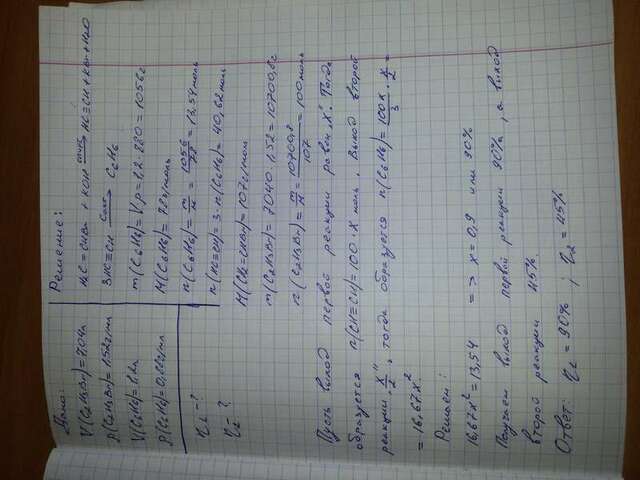 Дано:
V(C2H3Br)=7,04л
ρ(C2H3Br)=1,52г/мл
V(C6H6)=1,2л
ρ(C6H6)=0,88г/мл
η1-?
η2-?
Решение:
H2C=CHBr + KOH спирт→ HC≡CH+KBr+H2O
3HC≡CH Cакт→ C6H6
m(C6H6)=V·ρ=1,2·880=1056г
M(C6H6)=78г/моль
n(C6H6)=m/M=1056/78=13,54моль
n(HC≡CH)=3·n(C6H6)=40,62моль
M(CH2=CHBr)=107г/моль
m(C2H3Br)=7040·1,52=10700,8г
n(C2H3Br)=m/M=10700,8/107=100моль
Пусть выход первой реакции равен „x". Тогда
образуется n(CH≡CH)=100·x моль. Выход второй
реакции „x/2", тогда образуется n(C6H6)=100x/3·x/2=
=16,67x².
Решаем:
16,67x²=13,54 => x=0,9 или 90%
Получаем выход первой реакции 90%, а выход
второй реакции 45%
Ответ: η1=90%; η2=45%